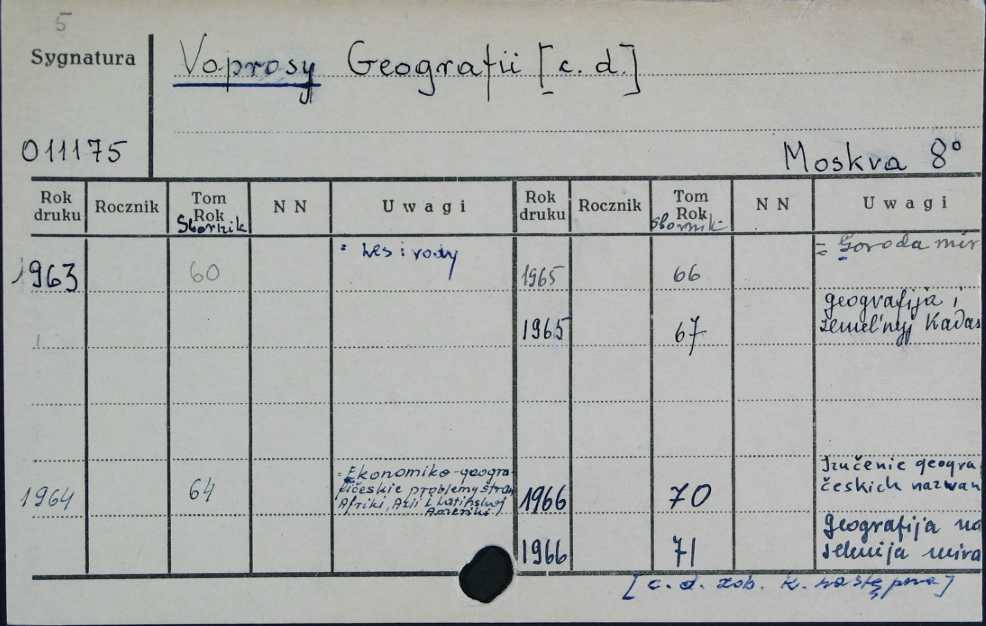 5
Sygnatura
Voprosy Geografii [c. d.]
011175
Moskva 8°
Rok druku Rocznik Tom Rok Sbornik N N Uwagi Rok druku Rocznik Tom Rok Sbornik N N Uwagi
1963 60 = Les i vody 1965 66 = Goroda mir
1965 67 geografija i
zemel'nyj Kadas
1964 64 = Ekonomiko-geogra-
fičeskie problemy stran
Afriki, Azii i Latinskoj
Ameriki
1966 70 Izučenie geogra
českich nazwan
1966 71 Geografija na
selenija mira
[c. d. zob. k. następna]